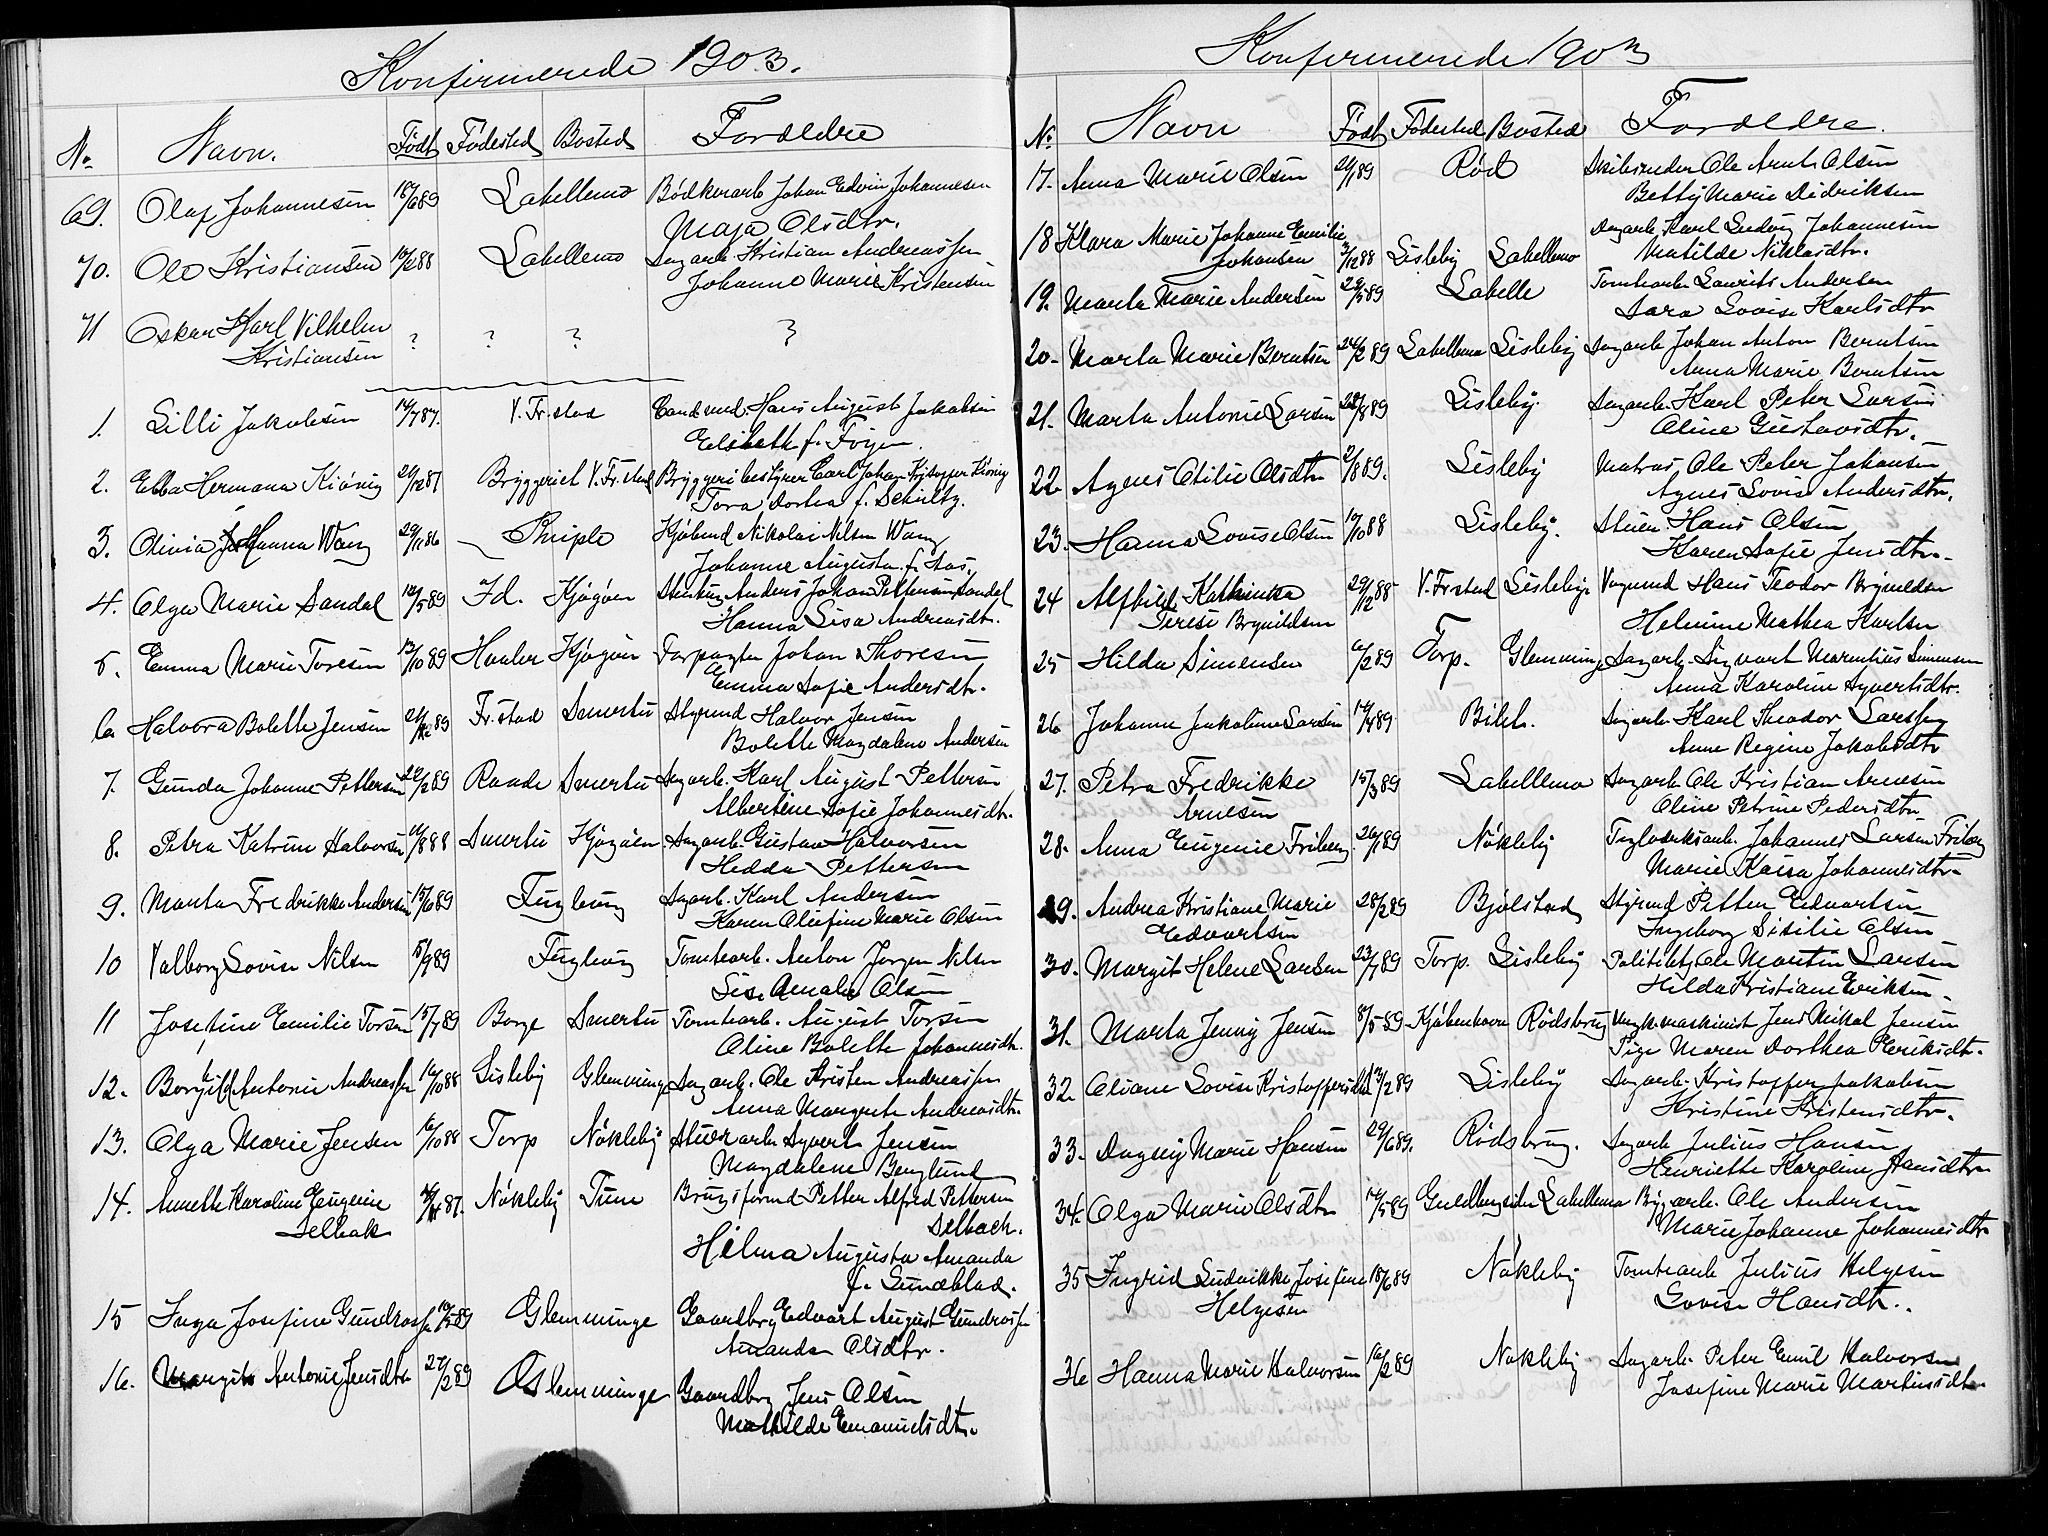 Konfirmerede 1903.
No. Navn. Født Fødested Bosted Forældre
69. Olaf Johannesen 18/6 89 Labellemo Bødkerarb. Johan Edvin Johannesen
Maja Olsdtr.
70. Ole Kristiansen 10/2 88 Labellemo Dagarb. Kristian Andreassen
Johanne Marie Kristensen
71 Oskar Karl Vilhelm ? ? ? ?
Kristiansen
1. Lilli Jakobsen 14/7 87. V. Fr.stad Cand. med. Hans August Jakobsen
Elisbeth f. Foyn.
2. Ebba Hermana Kiønig 20/12 87 Bryggeriet V. Fr.stad Bryggeribestyrer Carl Johan Kristoffer Kiønig
Tora Dortea f. Schultz.
3. Olivia Johanna Wang 20/11 86 Kjøbmd Nikolai Nilsen Wang
Johanne Augusta f. Aas.
4. Olga Marie Sandal 12/5 89 Id. Kjøgøen Stenhug. Anders Johan Pettersen Sandal
Hanna Lisa Andreasdtr.
5. Emma Marie Toresen 13/10 89 Hvaler Kjøgøen Forpagter Johan Thoresen
Emma Sofie Andersdtr.
6 Halvora Bolette Jensen 89 Fr.stad Smertu Styrmd Halvor Jensen
Bolette Magdalene Andersen
7. Gunda Johanne Pettersen 22/2 89 Raade Smertu Dagarb. Karl August Pettersen
Albertine Sofie Johannesdtr.
8. Petra Katrine Halvorsen 10/8 88 Smertu Kjøgøen Dagarb. Gustav Halvorsen
Hedda Pettersen
9. Marta Fredrikke Andersen 15/6 89 Teglverg Dagarb. Karl Andersen
Karen Olufine Marie Olsen
10 Valborg Lovise Nilsen 5/9 89 Tomtearb. Anton Jørgen Nilsen
Lise Amalie Olsen
11 Josefine Emilie Torsen 15/7 89 Borge Smertu Tomtearb. August Torsen
Oline Bolette Johannesdtr.
12. Borgild Antonie Andreassen 16/10 88 Lisleby Glemminge Dagarb. Ole Kristen Andreassen
Anna Margrete Andreasdtr.
13. Olga Marie Jensen 16/10 88 Torp Nøkleby Stuerarb. Syvert Jensen
Magdalene Berglund
14. Annette Karoline Eugenie 87. Nøkleby Tune Brugsformd Petter Alfred Pettersen
Selbak Selbach.
Hilma Augusta Amanda
f. Sundblad.
15 Inga Josefine Gundrossen 10/5 89 Glemminge Gaardbrg Edvart August Gundrossen
Amanda Olsdtr.
16. Margit Antonie Jensdtr 27/2 89 Glemminge Gaardbrg Jens Olsen
Mathilde Emanuelsdtr.
Konfirmerede 1903
No. Navn Født Fødested Bosted Forældre.
17. Anna Marie Olsen 21/1 89 Rød Skibsreder Ole Arnt Olsen
Betty Marie Didriksen
18 Klara Marie Johanne Emilie Dagarb. Karl Ludvig Johannesen
Johansen 3/12 88 Lisleby Labellemo Matilde Niklasdtr.
19. Marta Marie Andersen 29/5 89 Labelle Tomtearb. Laurits Andersen
Sara Lovise Karlsdtr
20. Marta Marie Berntsen 24/2 89 Labellemo Lisleby Dagarb Johan Anton Berntsen
Anna Marie Berntsen
21. Marta Antonie Larsen 28/8 89 Lisleby. Dagarb. Karl Peter Larsen
Oline Gustavsdtr.
22. Agnes Otilie Olsdtr 2/8 89. Lisleby Matros, Ole Peter Johansen
Agnes Lovise Andersdtr.
23. Hanna Lovise Olsen 10/10 88 Lisleby. Stuer. Hans Olsen
Karen Sofie Jensdtr.
24 Alfhild Kathinka 29/12 88 V. Fr.stad Lisleby. Vognmd Hans Teodor Brynildsen
Terese Brynildsen Helmine Mathea Karlsen
25 Hilda Simensen 6/2 89 Torp. Glemminge Dagarb. Sigvart Marentius Simensen
Anna Karoline Syvertsdtr.
26 Johanne Jakobine Larsen 14/4 89 Bilet. Dagarb. Karl Theodor Larsen
Anne Regine Jakobsdtr
27. Petra Fredrikke 15/3 89 Labellemo Dagarb Ole Kristian Arnesen
Arnesen Oline Petrine Pedersdtr
28. Anna Eugenie Friberg. 26/1 89 Nøkleby Teglverksarb. Johannes Larsen Friberg
Marie Kaisa Johannesdtr.
29. Andrea Kristiane Marie 28/2 89 Bjølstad Styrmd Petter Edvartsen
Edvartsen Ingeborg Sisilie Olsen
30. Margit Helene Larsen 23/7 89 Torp. Lisleby Politibtj. Ole Martin Larsen
Hilda Kristiane Eriksen.
31. Marta Jenny Jensen 8/5 89 Kjøbenhavn Rødsbrug Jens Mikal Jensen
Pige Maren Dorthea Eriksdtr.
32 Oliane Lovise Kristoffersdtr 13/2 89 Lisleby Dagarb. Kristoffer Jakobsen
Kristine Kristensdtr.
33. Dagny Marie Hansen 29/6 89. Rødsbrug. Dagarb Julius Hansen
Henriette Karoline Hansdtr
34. Olga Marie Olsdtr 14/5 89 Guldbergsiden Labellemo Bygarb. Ole Andersen
Marie Johanne Johannesdtr
35 Ingrid Ludvikke Josefine 18/6 89 Nøkleby Tomtearb Julius Helgesen
Helgesen Lovise Hansdtr.
36 Hanna Marie Halvorsen 16/2 89 Nøkleby Dagarb. Peter Emil Halvorsen
Josefine Marie Martinsdtr